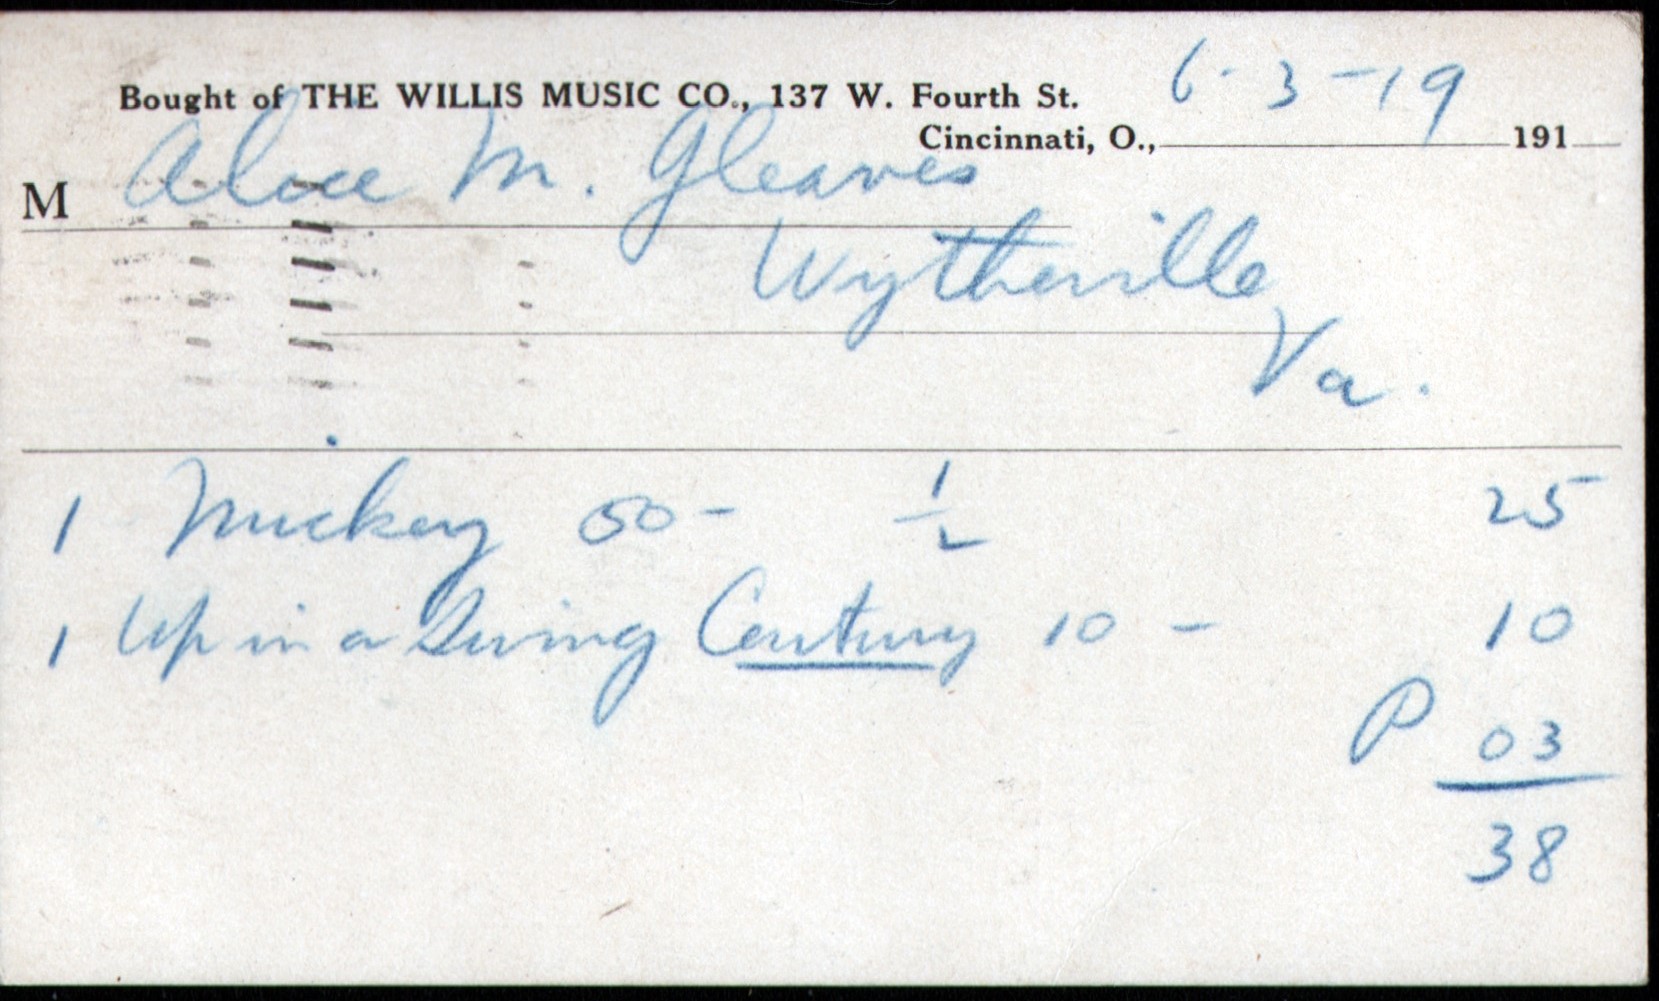 Bought of THE WILLIS MUSIC CO., 137 W. Fourth St. 6-3-19
Cincinnati, O., 191
M Alice M. Gleaves
Wytheville,
Va.
1 Mickey 50- 1/2 25
1 Up in a Swing Century 10 - 10
P 03
38